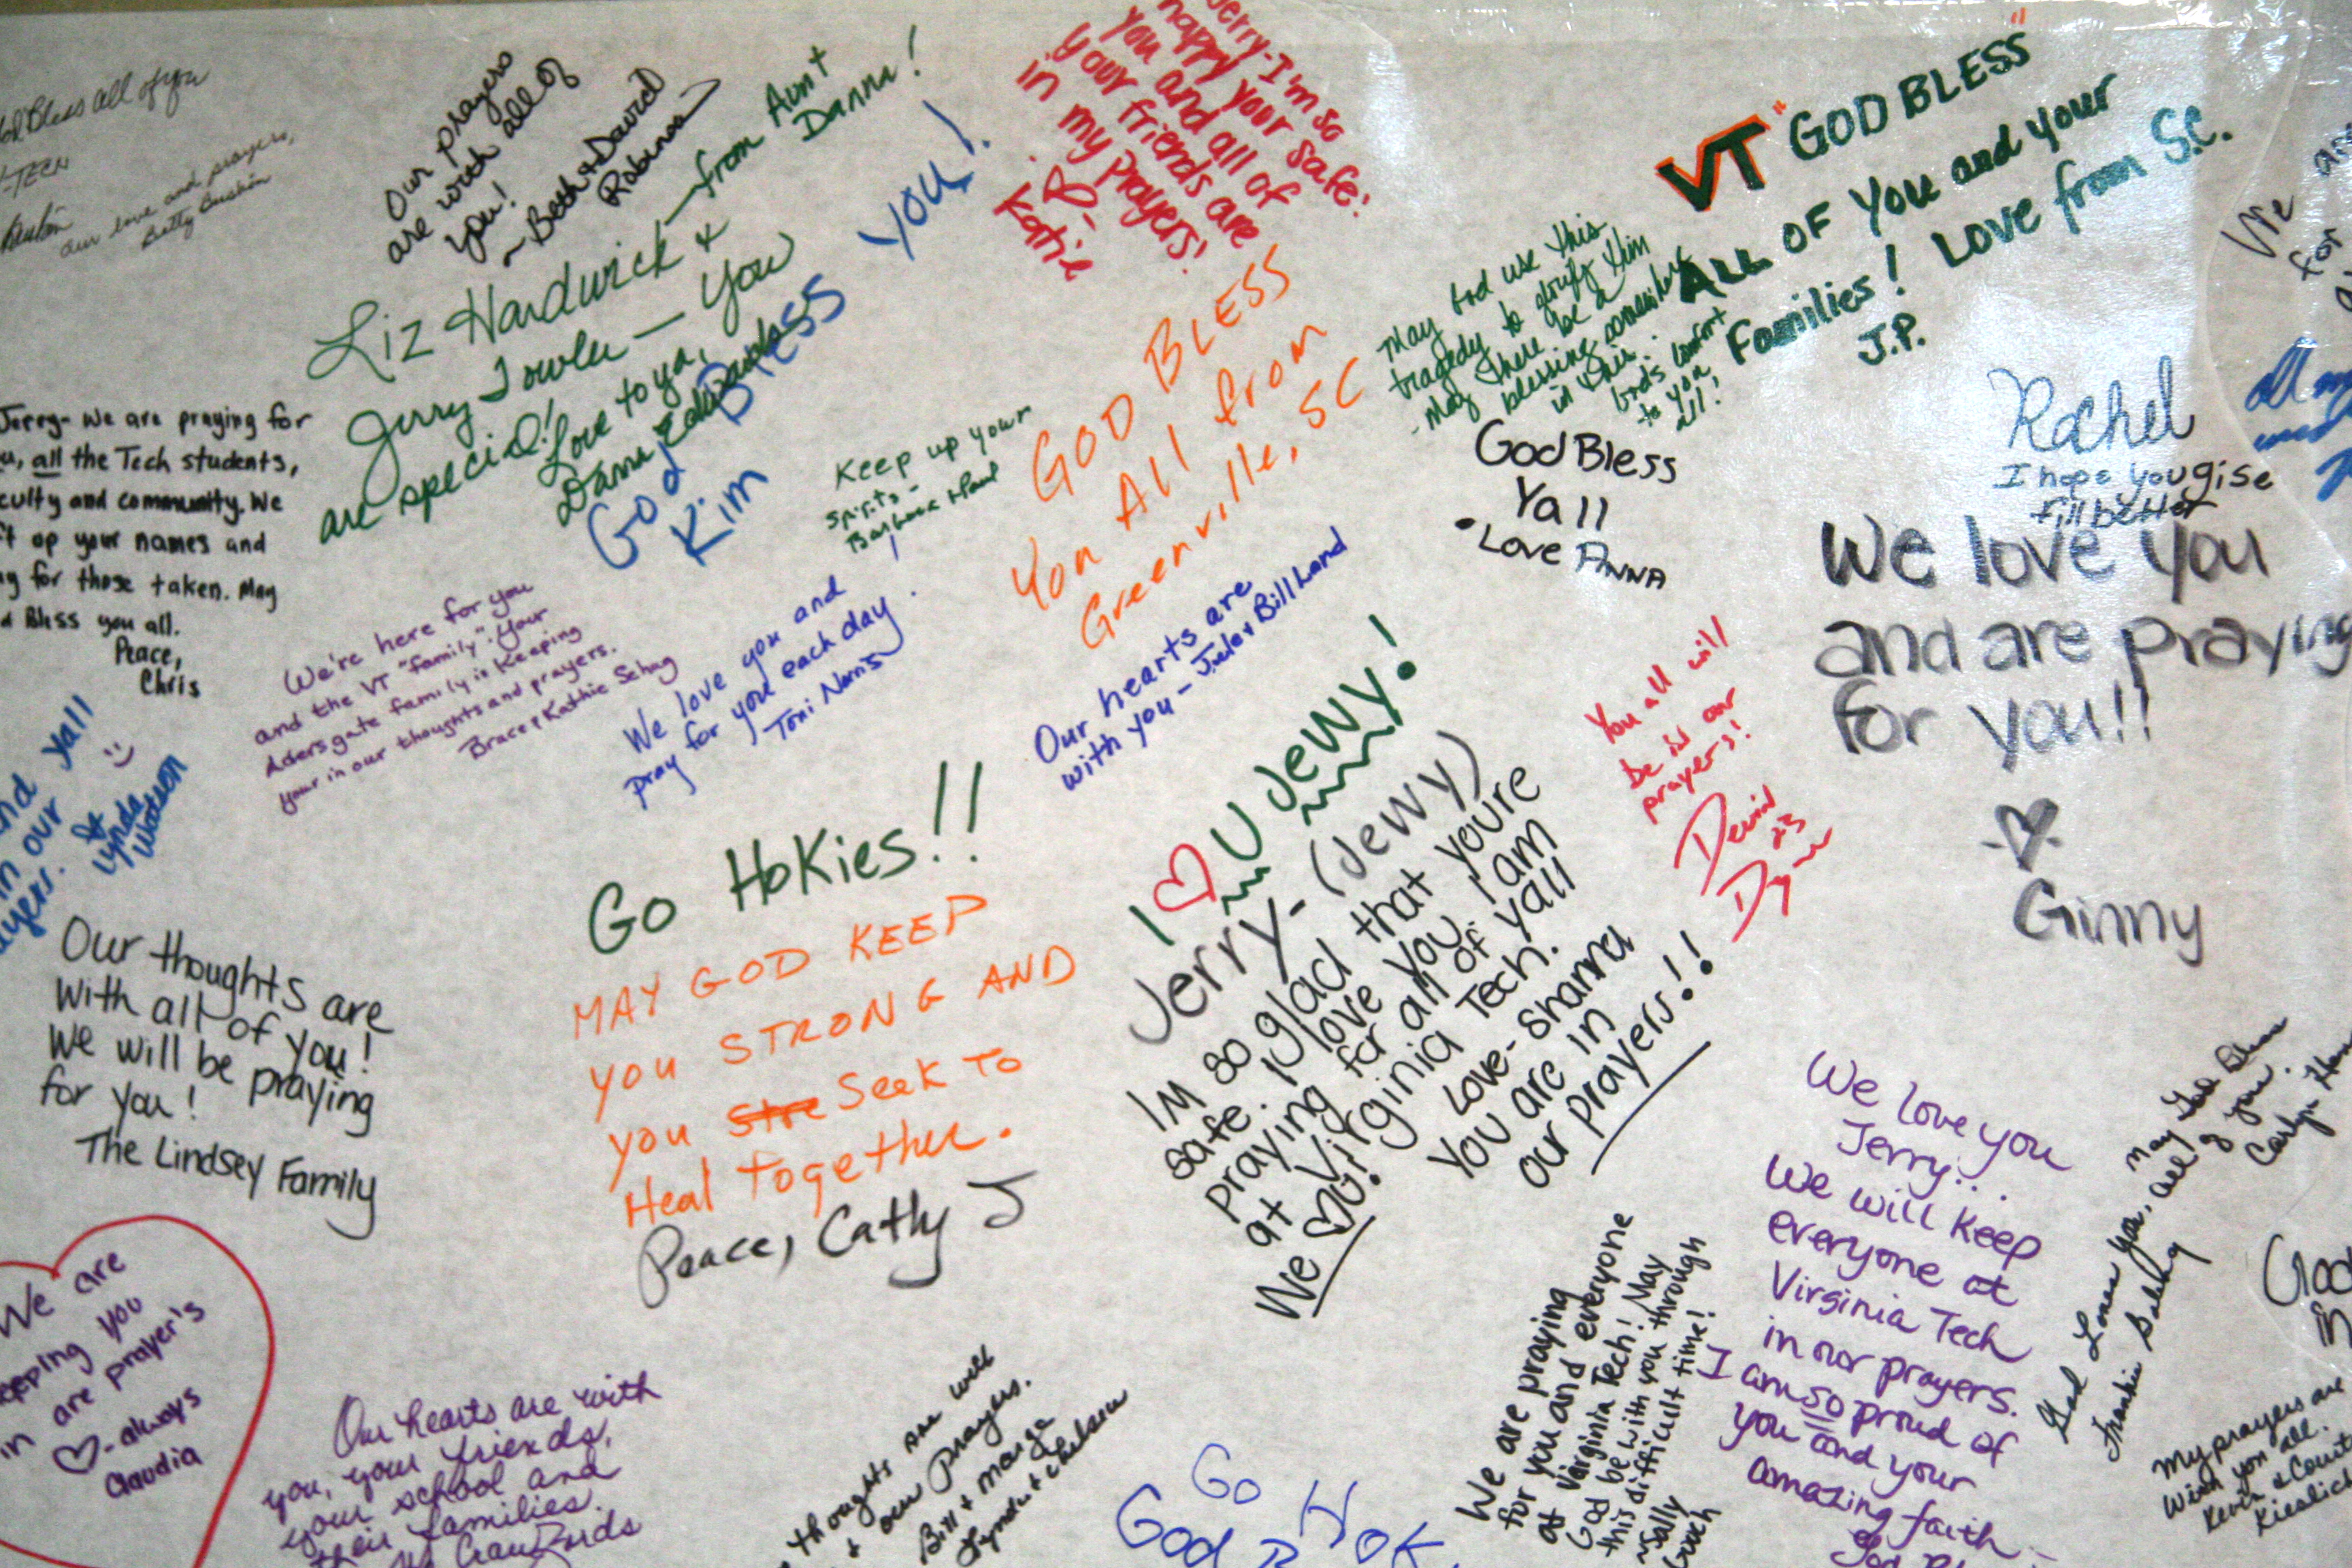 Bless all of you
-TECH
our love and prayers,
Betty
Our prayers
are with all of
you!
~Beth & David
Robinson
Liz Hardwick &
Jerry Towler — You
are special!
Love to ya,
Danna Edwards
—from Aunt
Danna!
God Bless you!
Kim
Jerry-I'm so
happy your safe!
you and all of
your friends are
in my prayers!
Katie
B.
VT "GOD BLESS"
ALL OF You and your
Families! Love from S.C.
J.P.
May God use this
tragedy to glorify Him
-May there be a
blessing somewhere
in this.
God's comfort
to you
all!
Jerry- We are praying for
all the Tech students,
culty and community. We
up your names and
for those taken. May
Bless you all.
Peace,
Chris
Keep up your
spirits-
Barbara & Paul
GOD BLESS
You All from
Greenville, SC
God Bless
Ya'll
•Love ANNA
Rachel
I hope you gise
fill better
We love you
and are praying
for you!!
Ginny
We're here for you
and the VT "family". Your
Aldersgate family is Keeping
your in our thoughts and prayers.
Bruce & Kathie Sehag
We love you and
pray for you each day.
Toni Norris
Our hearts are
with you - & Bill Land
You all will
be in our
prayers!
yall
in our
Lynda
Watson
Go Hokies!!
MAY GOD KEEP
YOU STRONG AND
YOU Stre Seek To
Heal Together.
Peace, Cathy J
I ♡ U Jewy!
Jerry-(Jewy)
I'm so glad that you're
safe. I love you. I am
praying for all of yall
at Virginia Tech.
Love-Shanna
We ♡ U!
You are in
our prayers!!
Our thoughts are
with all of you!
We will be praying
for you!
The Lindsey Family
We are
keeping you
in are prayer's
♡-always
Claudia
Our hearts are with
you, your friends,
your school and
their families.
Crawfords
thoughts are with
& our Prayers.
Bill & Marge
Lyndu & Chelsea
Go HOK
God B
We are praying
for you and everyone
at Virginia Tech! May
God be with you through
this difficult time!
~Sally
Gooch
We love you
Jerry...
We will keep
everyone at
Virginia Tech
in our prayers.
I am so proud of
you and your
amazing faith-
God Bl
May God Bless
all of you.
Carlyn
God Loves you,
Frankie
God
is
My prayers are
with you all.
Kevin & Court